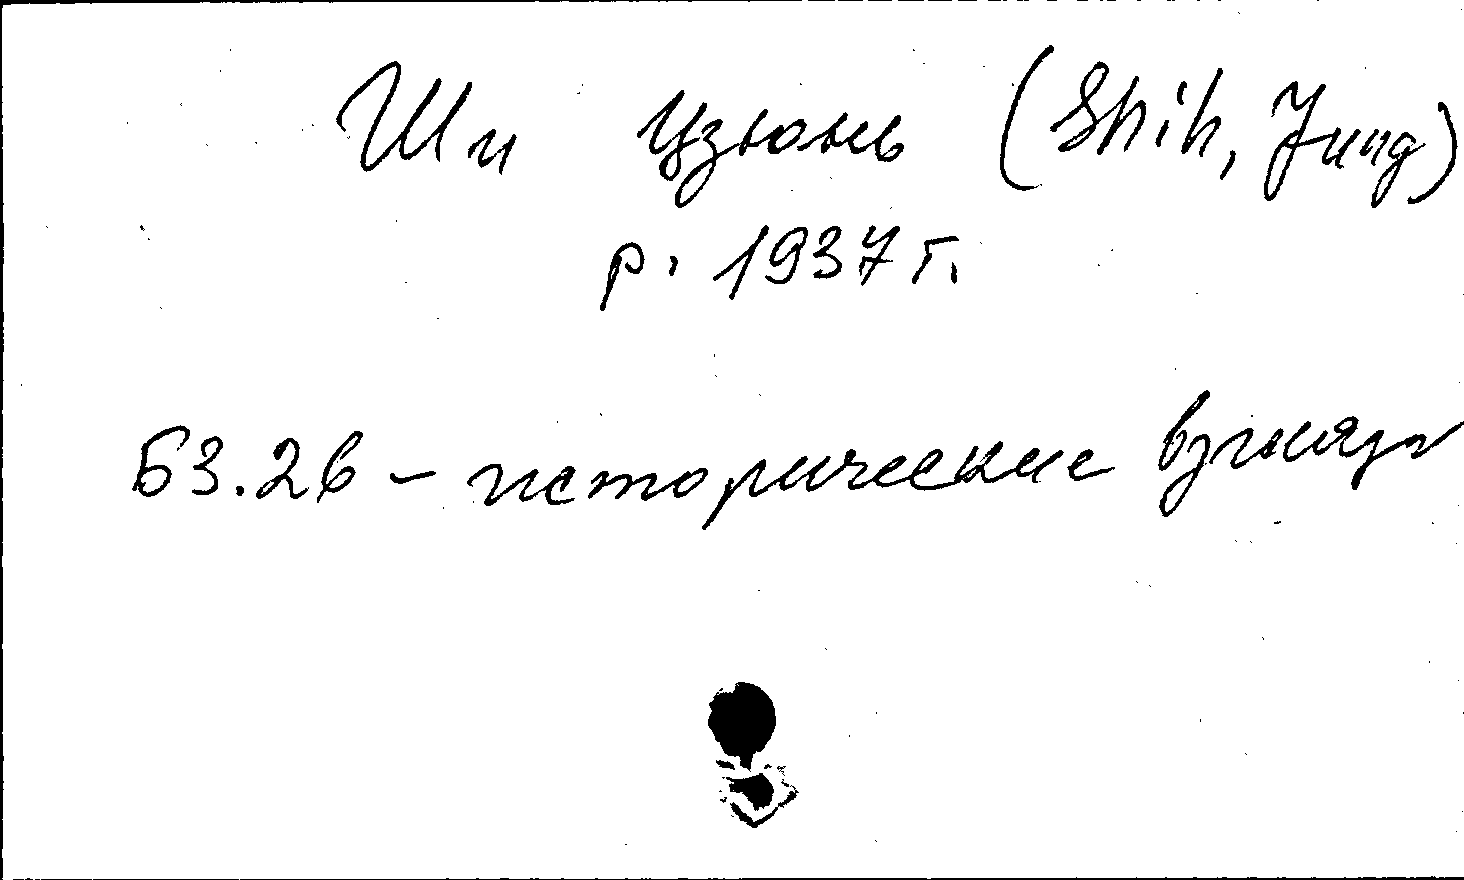 Ши Цзюнь (Shih, Jung)
р. 1937 г.
Б3.26 – исторические взгляды